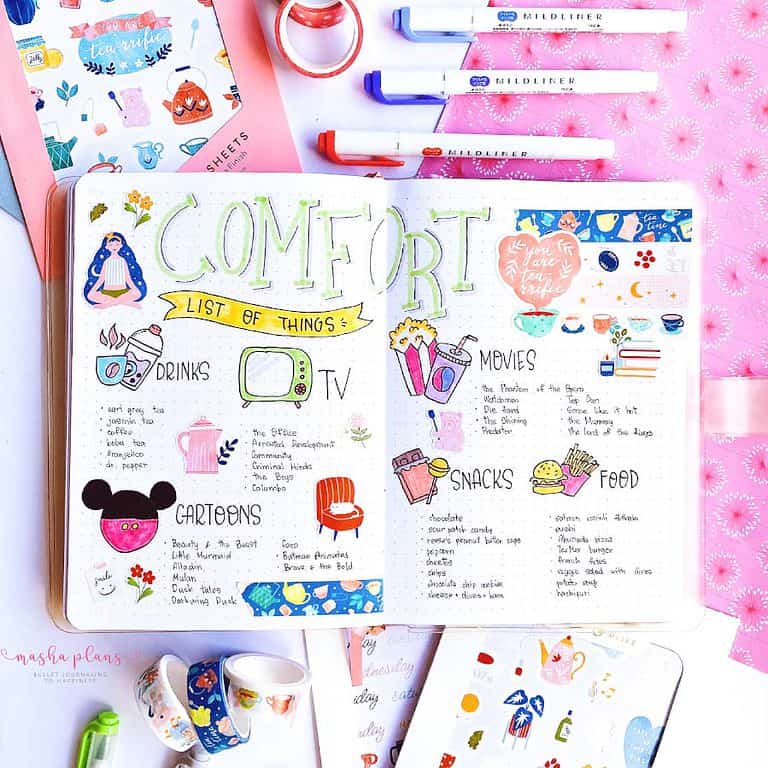 YOU ARE
tea-rrific
Jelly
SHEETS
Finish
MILDLINER
MILDLINER
MILDLINER
COMFORT
LIST OF THINGS
tea
time
you
are
tea-
rrific
DRINKS
earl grey tea
jasmin tea
coffee
boba tea
franjelico
dr. pepper
TV
the Office
Arrested Development
Community
Criminal Minds
the Boys
Columbo
CARTOONS
Beauty & the Beast
Little Mermaid
Alladin
Mulan
Duck tales
Darkwing Duck
Coco
Batman Animates
Brave & the Bold
smile
MOVIES
the Phantom of the Opera
Watchmen
Die Hard
the Shining
Predator
Top Gun
Some like it hot
the Mummy
the Lord of the Rings
SNACKS
chocolate
sour patch candy
reese's peanut butter cups
popcorn
cheetos
chips
chocolate chip cookies
cheese + olives + bars
FOOD
sushi
Teryaki burger
french fries
veggie salad with olives
potato soup
hachipuri
masha plans
BULLET JOURNALING
TO HAPPINESS
day
nesday
day
satur
day